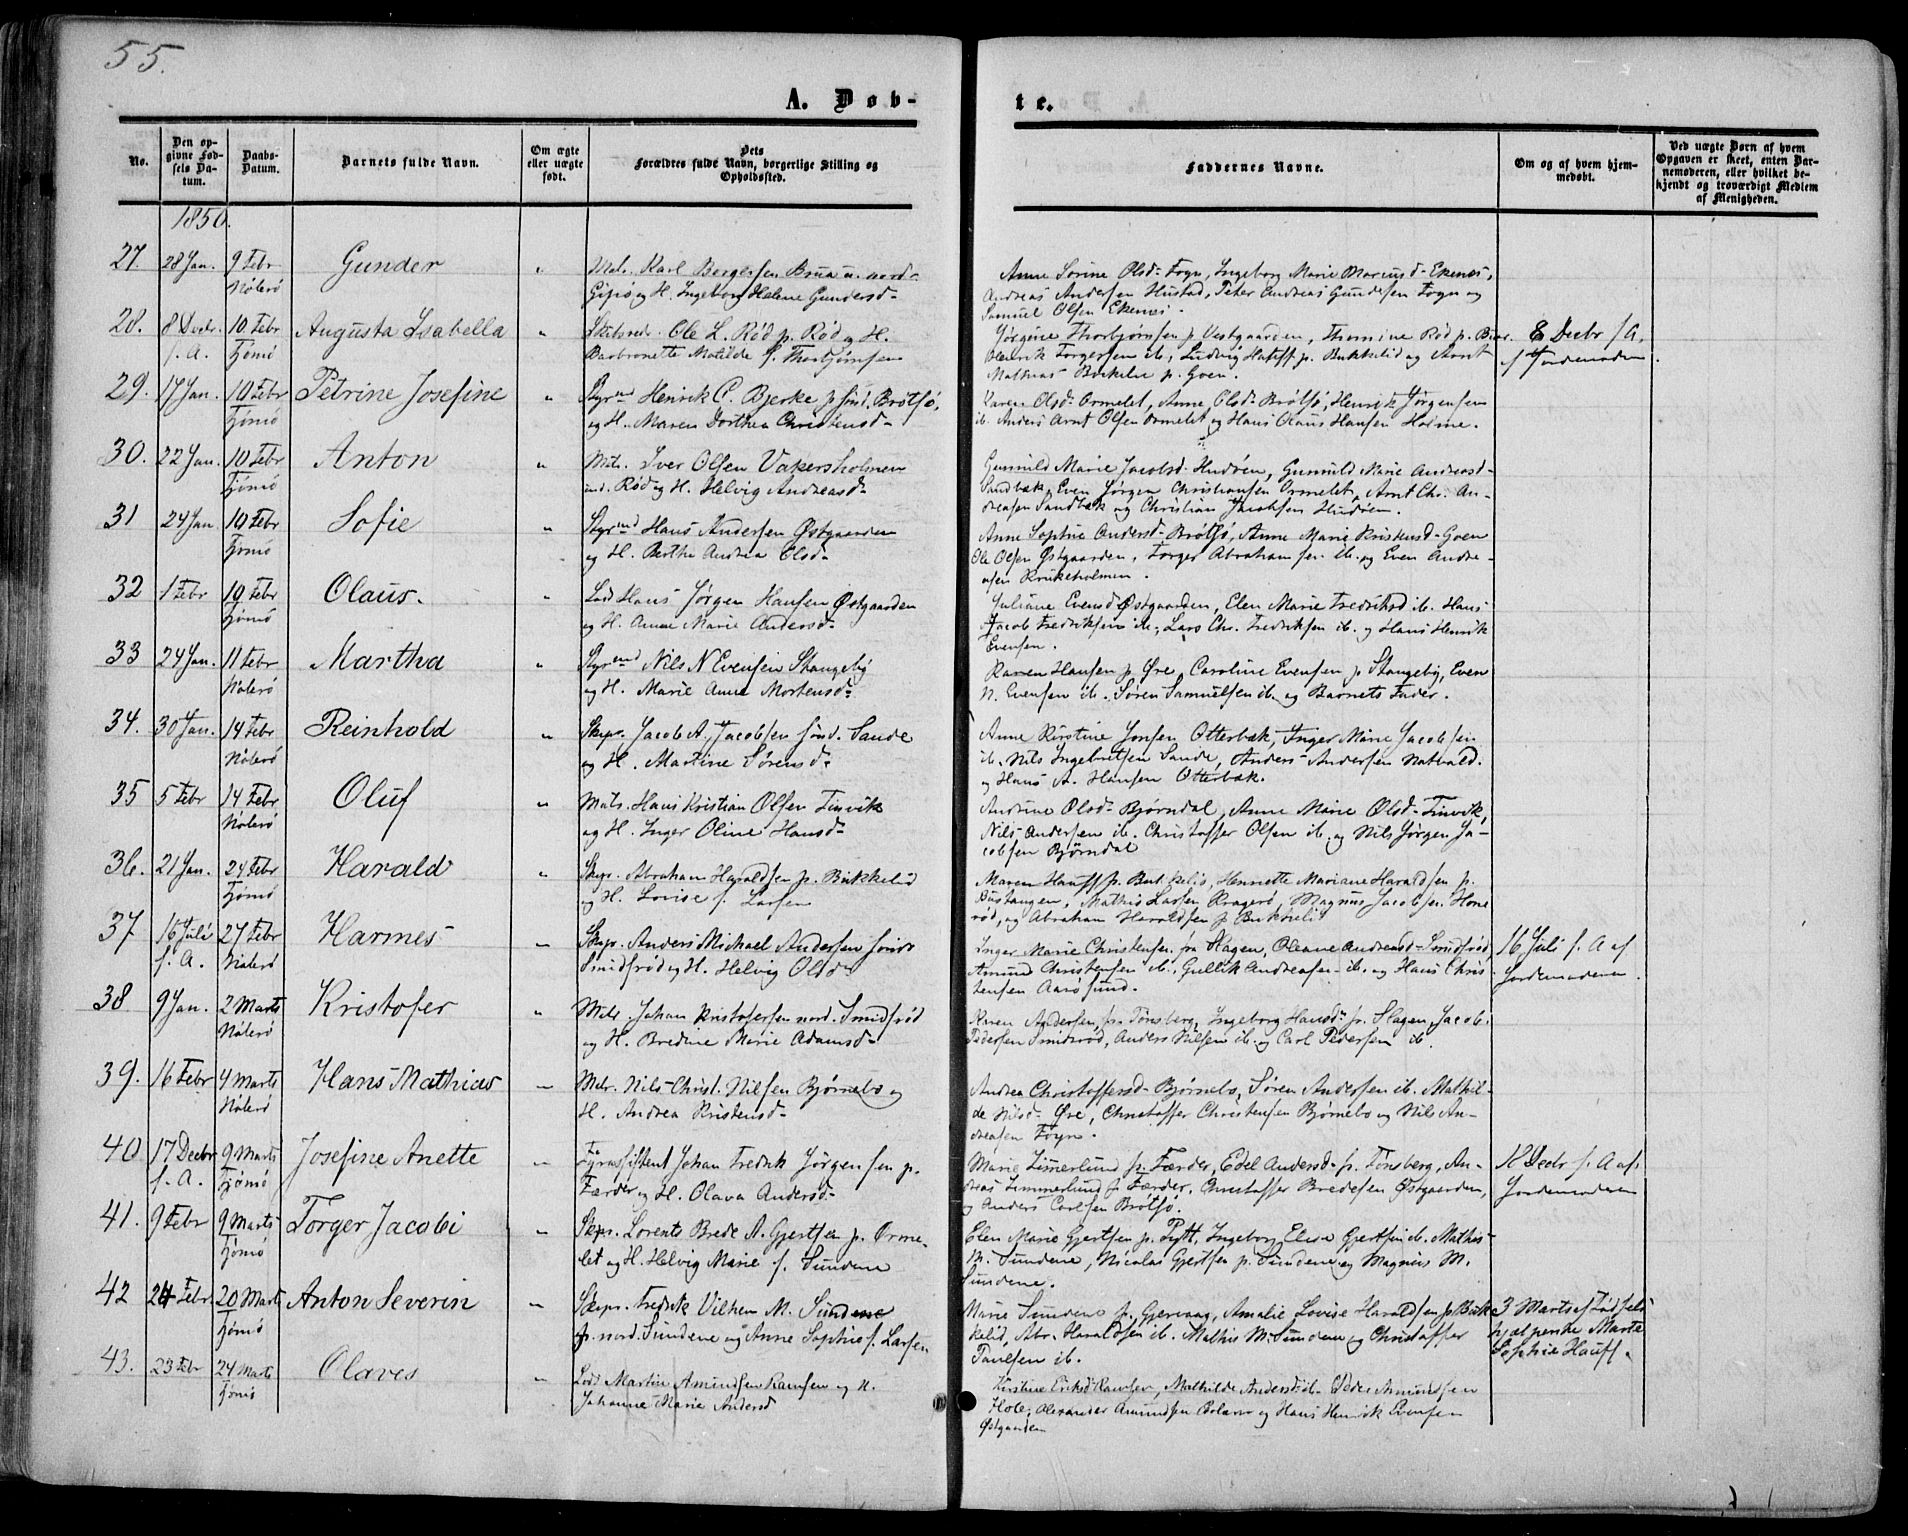 55.
A. Døb-
te.
No.
Den opgivne Fødsels Datum.
Daabs-Datum.
Barnets fulde Navn.
Om ægte eller uægte født.
Dets Forældres fulde Navn, borgerlige Stilling og Opholdssted.
Faddernes Navne.
Om og af hvem hjemmedøbt.
Ved uægte Børn af hvem Opgaven er skeet, enten Barnemoderen, eller hvilket bekjendt og troværdigt Medlem af Menigheden.
1850.
27. 28 Jan. 9 Febr Nøterø Gunder " Matr. Karl Bergersen Brua u. nord.
Gipø og H. Ingeborg Helene Gundersd-
Anne Sorine Olsd- Fogn, Ingeborg Marie Marcusd- Ekenes,
Andreas Andersen Hustad, Peter Andreas Gundesen Fogn og
Samuel Olsen Ekenes.
28. 8 Decbr. f. A. 10 Febr Tjømø Augusta Isabella " Ole L. Rød p. Rød og H.
Barbronette Matilde f. Thorbjørnsen
Jørgine Thorbjørnsen p. Vestgaarden, Thomine Rød p.
Henrik Torgersen ib, Ludvig Hauff p. Bukkelid og Arnt
Mathias Bukelie p. Goen.
8 Decbr f A.
f Jordemoderen.
29. 17 Jan. 10 Febr Tjømø Petrine Josefine " Styrmd Henrik C. Bjerke p Sud. Brøtsø,
og H. Maren Dorthea Christensd-
Karen Olsd- Ormelet, Anne Olsd- Brøtsø, Henrik Jørgensen
ib. Anders Arnt Olsen Ormelet og Hans Olaus Hansen Holme.
30. 22 Jan. 10 Febr Tjømø Anton " Mts. Iver Olsen Vakersholmen
und. Rød og H. Helvig Andreasd-
Gunnild Marie Jacobsd- Hudøen, Gunnild Marie Andreasd-
Sandbæk, Even Jørgen Christiansen Ormelet, Arnt Chr. An-
dreasen Sandbæk og Christian Jacobsen Hudøen.
31 24 Jan 10 Febr Tjømø Sofie " Styrmd Hans Andersen Østgaarden
og H. Berthe Andrea Olsd-
Anne Sophie Andersd- Brøtsø, Anne Marie Kristensd- Goen
Ole Olsen Østgaarden, Torger Abrahamsen ib. og Even Andre-
asen Krukeholmen.
32 1 Febr 10 Febr Tjømø Olaus. " Lods Hans Jørgen Hansen Østgaarden
og H. Anne Marie Andersd-
Juliane Evensd Østgaarden, Elen Marie Fredriksd ib. Hans
Jacob Fredriksen ib., Lars Chr. Fredriksen ib. og Hans Henrik
Evensen.
33 24 Jan. 11 Febr Nøterø Martha " Styrmd Nils N Evensen Stangeby
og H. Marie Anne Mortensd-
Karen Hansen p. Øre, Caroline Evensen p. Stangeby, Even
N. Evensen ib. Søren Samuelsen ib og Barnets Fader.
34. 30 Jan. 14 Febr Nøterø Reinhold " Skpr. Jacob A. Jacobsen sønd. Sande
og H. Martine Sørensd-
Anne Kirstine Jonsen Otterbæk, Inger Marie Jacobsen
ib. Nils Ingebretsen Sande, Anders Andersen Natvald.
og Hans A. Hansen Otterbæk.
35 5 Febr 14 Febr Nøterø Oluf " Mats. Hans Kristian Olsen Tinvik
og H. Inger Oline Hansd-
Andrine Olsd- Bjørndal, Anne Marie Olsd- Tinvik,
Nils Andersen ib. Christoffer Olsen ib. og Nils Jørgen Ja-
cobsen Bjørndal
36. 21 Jan. 24 Febr Tjømø Harald " Skpr. Abraham Haraldsen p. Bukkelid
og H. Lovise f. Larsen
Maren Hauff p. Bukkelid, Henriette Mariane Haraldsen p.
Bustangen, Mathis Larsen Kragerø, Magnus Jacobsen Hone
rød, og Abraham Haraldsen p Bukkelid
37 16 Juli f. A. 27 Febr Nøterø Harmes " Skpr. Anders Michael Andersen
Smidsrød og H. Helvig Olsd-
Inger Marie Christensen fra Hagen, Oleane Andreasd- Smidsrød,
Amund Christensen ib, Gullik Andreasen ib. og Hans Chris
tensen Aarøsund.
16 Juli f. A af
Jordemoderen.
38 9 Jan. 2 Marts Nøterø Kristofer " Mts. Johan Kristofersen nord. Smidsrød
og H. Bredine Marie Adamsd-
Karen Andersen, fra Tønsberg, Ingeborg Hansd- fr. Slagen, Jacob
Pedersen Smidsrød, Anders Nilsen ib. og Carl Pedersen ib.
39. 16 Febr 4 Marts Nøterø Hans Mathias " Mtr. Nils Christ. Nilsen Bjørnebo og
H. Andrea Kristensd-
Andrea Christoffersd- Bjørnebo, Søren Andersen ib. Mathil-
de Nilsd- Øre, Christoffer Christensen Bjørnebo og Nils An-
dreasen Fogn.
40 17 Decbr f. A. 9 Marts Tjømø Josefine Anette " Fyrassistent Johan Fredrik Jørgensen p.
Færder og H. Olava Andersd-
Marie Zimmerlund p. Færder, Edel Andersd- fr. Tønsberg, An-
dreas Zimmerlund p. Færder, Christoffer Bredesen Østgaarden,
og Anders Carlsen Brøtsø.
18 Decbr f. A af
Jordemoderen
41. 9 Febr 9 Marts Tjømø Torger Jacobi " Skpr. Lorents Brede A. Gjertsen p. Orme-
let og H. Helvig Marie f. Sundene
Elen Marie Gjertsen p. Pytt, Ingeborg Elise Gjertsen ib. Mathis
M. Sundene, Nicolai Gjertsen p. Sundene og Magnus M.
Sundene.
42 24 Febr. 20 Marts Tjømø Anton Severin " Skpr. Fredrik Vilhem M. Sundene
p. nord. Sundene og Anne Sophie f. Larsen
Marie Sundene p. Gjervaag, Amalie Lovise Haraldsen p Buk
kelid, Abr. Haraldsen ib. Mathis M. Sundene og Christoffer
Paulsen ib.
3 Marts af Fødsels
hjælperske Marte
Sophie Hauff.
43. 23 Febr 24 Marts Tjømø Olaves " Lods Martin Amundsen Ramsen og H.
Johanne Marie Andersd
Kirstine Eriksd Ramsen, Mathilde Andersd ib. Peder Amundsen
Hole, Alexander Amundsen og Hans Henrik Evensen
Østgaarden